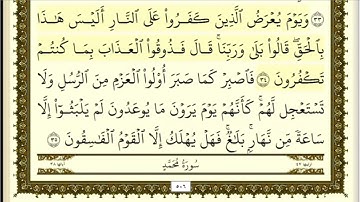 ٣٣ وَيَوْمَ يُعْرَضُ الَّذِينَ كَفَرُوا۟ عَلَى النَّارِ أَلَيْسَ هَٰذَا
بِالْحَقِّ ۖ قَالُوا۟ بَلَىٰ وَرَبِّنَا ۚ قَالَ فَذُوقُوا۟ الْعَذَابَ بِمَا كُنتُمْ
تَكْفُرُونَ ٣٤ فَاصْبِرْ كَمَا صَبَرَ أُو۟لُوا۟ الْعَزْمِ مِنَ الرُّسُلِ وَلَا
تَسْتَعْجِل لَّهُمْ ۚ كَأَنَّهُمْ يَوْمَ يَرَوْنَ مَا يُوعَدُونَ لَمْ يَلْبَثُوٓا۟ إِلَّا
سَاعَةً مِّن نَّهَارٍۭ ۚ بَلَٰغٌ ۚ فَهَلْ يُهْلَكُ إِلَّا الْقَوْمُ الْفَٰسِقُونَ ٣٥
سُورَةُ مُحَمَّدٍ
٥٠٦